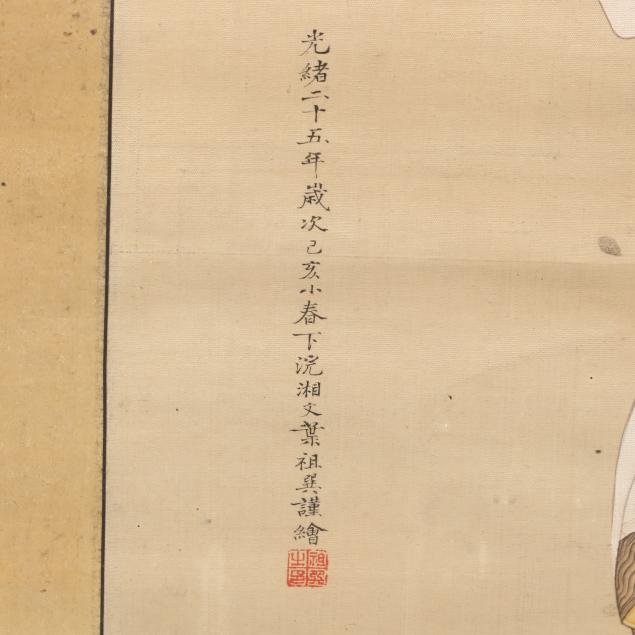 光緒二十五年歲次己亥小春下浣湘文葉祖巽謹繪
祖巽
之印